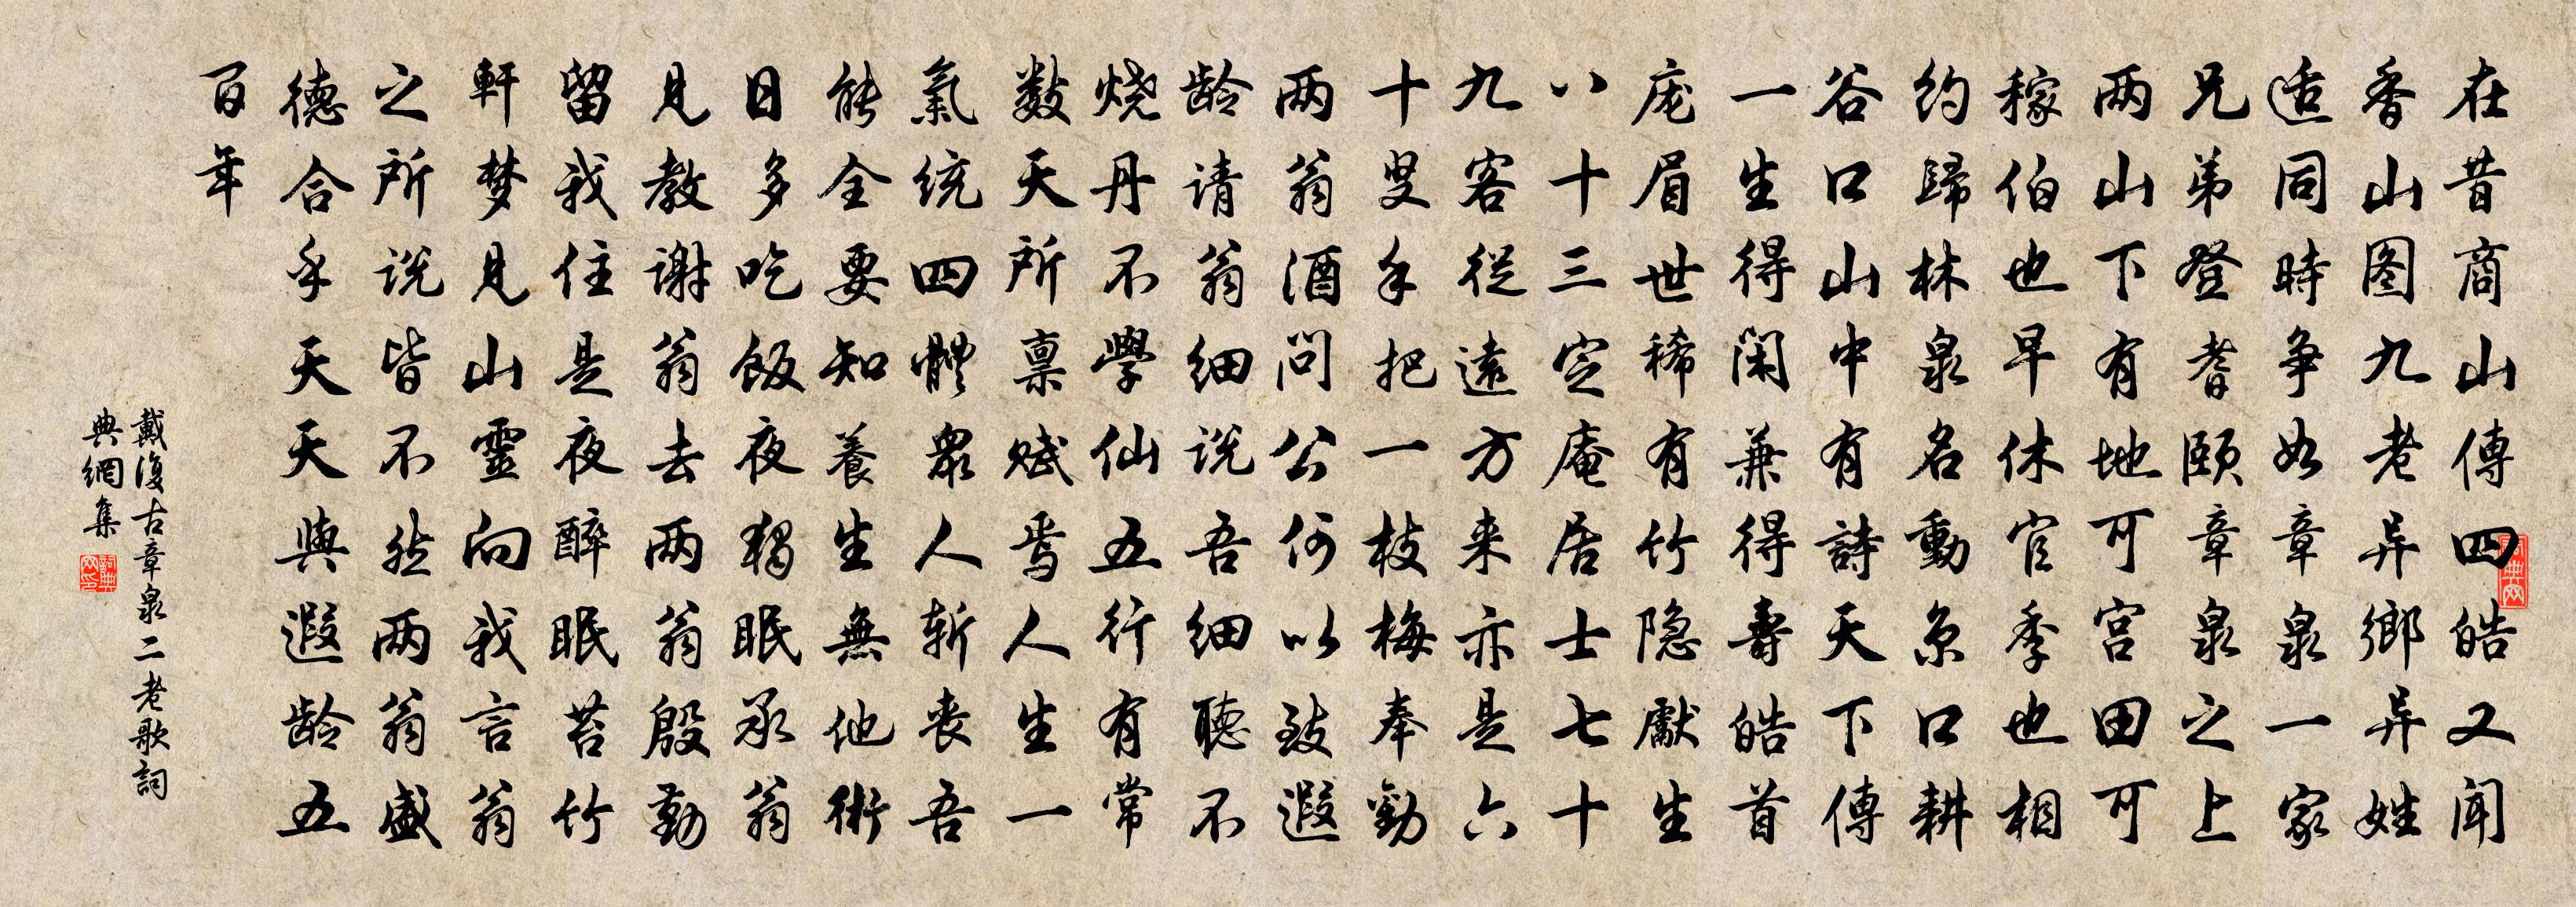 在昔商山傳四皓又闻
香山图九老异鄉异姓
适同時争如章泉一家
兄弟登耆颐章泉之上
两山下有地可宫田可
稼伯也早休官季也相
约歸林泉名動京口耕
谷口山中有詩天下傳
一生得闲兼得壽皓首
庞眉世稀有竹隐厭生
八十三定庵居士七十
九客從遠方来亦是六
十叟手把一枝梅奉勸
两翁酒問公何以致遐
龄请翁细说吾细聽不
烧丹不學仙五行有常
数天所禀赋焉人生一
氣统四體衆人斩丧吾
能全要知養生無他術
日多吃饭夜獨眠承翁
見教谢翁去两翁殷勤
留我住是夜醉眠苔竹
軒梦見山靈向我言翁
之所说皆不然两翁盛
德合乎天天與遐龄五
百年
戴復古章泉二老歌詞
典網集